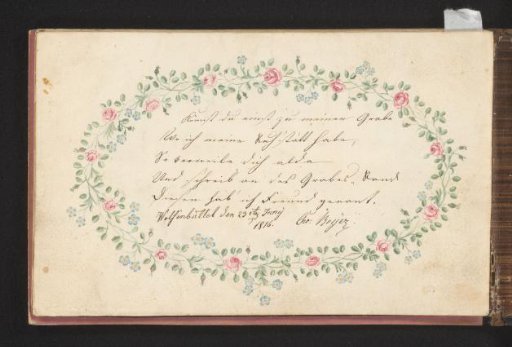 Kömst du einst zu meinem Grabe
Wo ich meine Ruhstätt habe,
So verweile dich alda
Und schreib an des Grabes-Rand
Diesen hab ich Freund genannt.
Wolfenbüttel den 23 Juny
1816.